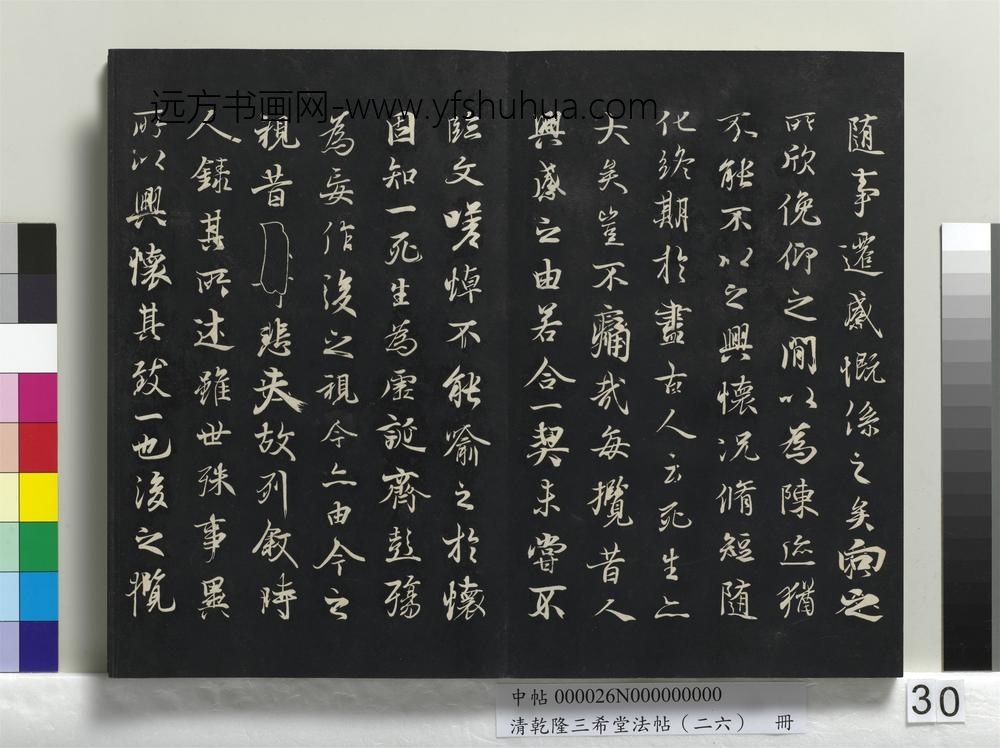 远方书画网-www.yfshuhua.com
随事遷感慨係之矣向之
所欣俛仰之間以為陳迹猶
不能不以之興懷況脩短随
化終期於盡古人云死生亦
大矣豈不痛哉每攬昔人
興感之由若合一契未嘗不
臨文嗟悼不能喻之於懷
固知一死生為虛誕齊彭殤
為妄作後之視今亦由今之
視昔悲夫故列敘時
人錄其所述雖世殊事異
所以興懷其致一也後之攬
中帖 000026N000000000
清乾隆三希堂法帖(二六) 冊
30